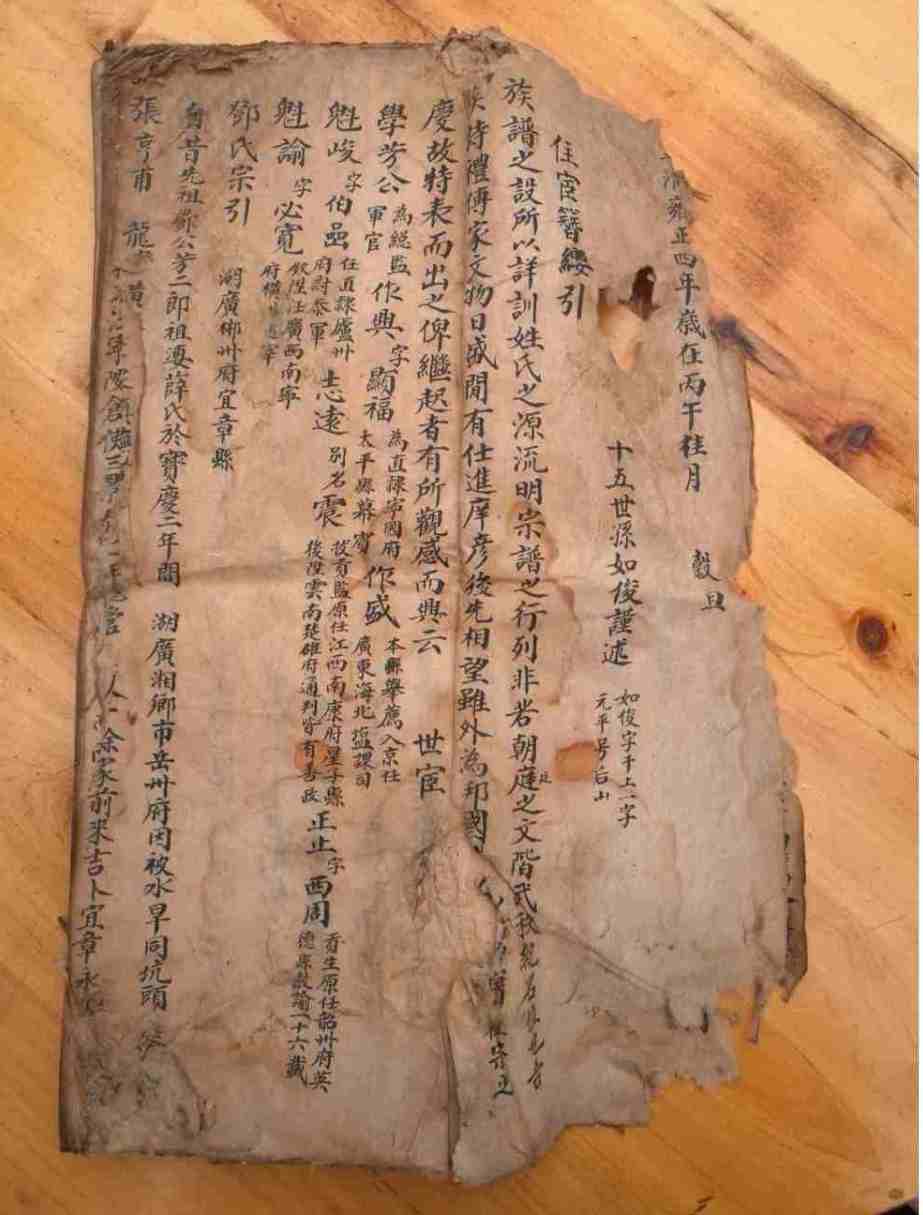 清雍正四年歲在丙午桂月　穀旦
十五世孫如俊謹述　如俊字于上二字
元平号后山
仕宦簪纓引
族譜之設所以詳訓姓氏之源流明宗譜之行列非若朝庭之文階武秩
詩禮傳家文物日盛間有仕進庠彥後先相望雖外為邦國
慶故特表而出之俾繼起者有所觀感而興云　世宦
學芳公　為總監
軍官　作興　字　顯福　為直隸寧國府
太平縣幕賓　作盛　本縣舉薦入京任
廣東海北塩課司
魁峻　字　伯嵒　任直隸廬州
府尉泰軍　志遠　別名　震　拔貢監原任江西南康府星子縣
後陞雲南楚雄府通判皆有善政　正止　字　西周　貢生原任韶州府英
德縣教諭一十六載
魁諭　字　必寬　欽陞任廣西南寧
府
鄧氏宗引　湖廣郴州府宜章縣
昔先祖鄧公芳二郎祖婆薛氏於寶慶三年間　湖廣湘鄉市岳州府因被水旱同坑頭
張亨甫　龍　鎮　家前來吉卜宜章永